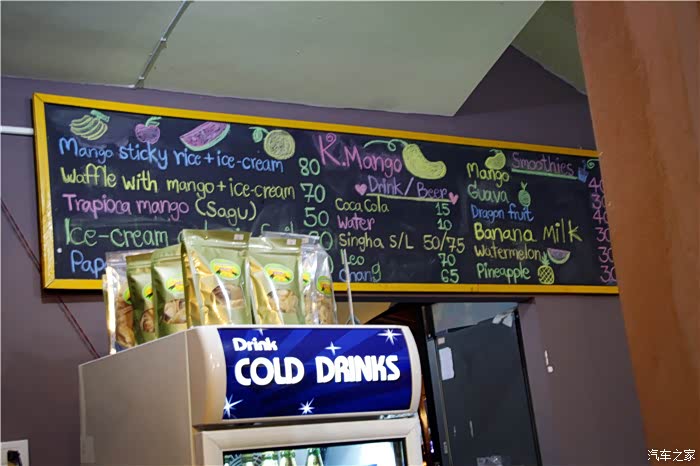 Mango sticky rice + ice-cream 80
Waffle with mango + ice-cream 70
Trapioca mango (Sagu) 50
Ice-cream
Pap
K.Mango
Drink/Beer
Coca Cola 15
Water 10
Singha S/L 50/75
Leo 70
Chang 65
Smoothies
Mango
Guava
Dragon fruit
Banana Milk
Watermelon
Pineapple
Drink
COLD DRINKS
汽车之家